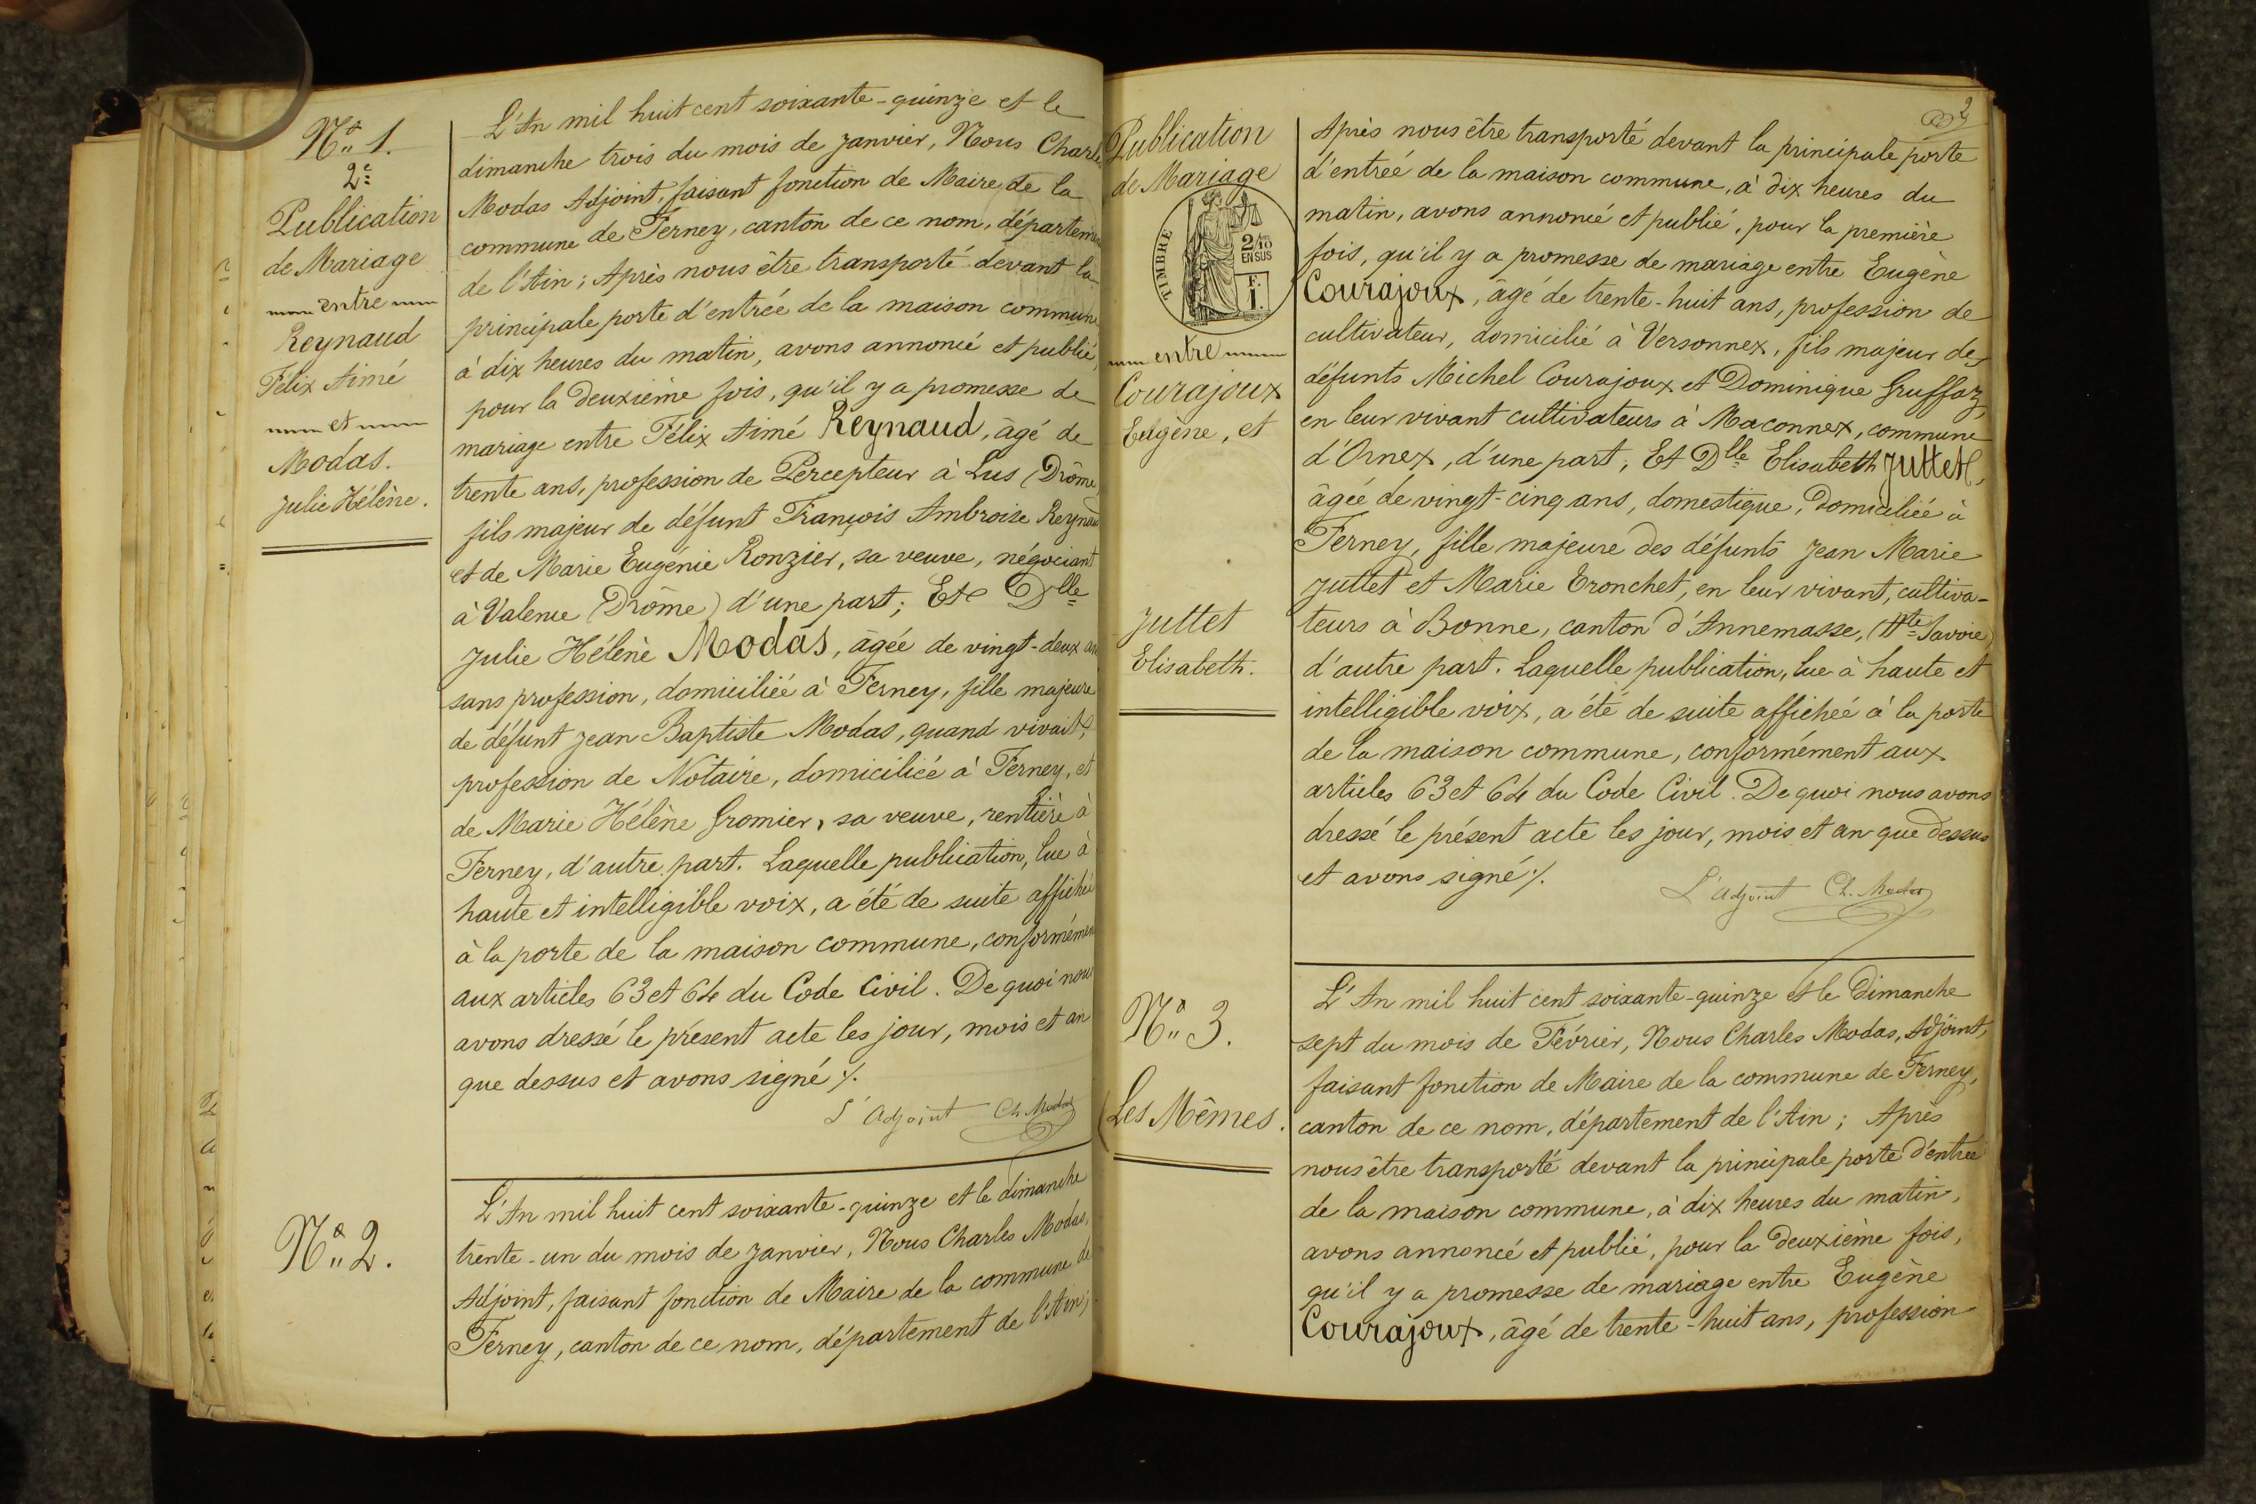 Nº 1.
2e
Publication
de Mariage
entre
Reynaud
Félix Aimé
et
Modas.
Julie Hélène.
L'An mil huit cent soixante-quinze et le
dimanche trois du mois de Janvier, Nous Charles
Modas Adjoint, faisant fonction de Maire, de la
commune de Ferney, canton de ce nom, département
de l'Ain; Après nous être transporté devant la
principale porte d'entrée de la maison commune
à dix heures du matin, avons annoncé et publié,
pour la deuxième fois, qu'il y a promesse de
mariage entre Félix Aimé Reynaud, âgé de
trente ans, profession de Percepteur à Lus (Drôme)
fils majeur de défunt François Ambroise Reynaud
et de Marie Eugénie Ronzier, sa veuve, négociant
à Valence (Drôme) d'une part; Et Dlle
Julie Hélène Modas, âgée de vingt-deux ans
sans profession, domiciliée à Ferney, fille majeure
de défunt Jean Baptiste Modas, quand vivait,
profession de Notaire, domiciliée à Ferney, et
de Marie Hélène Gromier, sa veuve, rentière à
Ferney, d'autre part. Laquelle publication, lue à
haute et intelligible voix, a été de suite affichée
à la porte de la maison commune, conformément
aux articles 63 et 64 du Code Civil. De quoi nous
avons dressé le présent acte les jour, mois et an
que dessus et avons signé ⁒.
L'Adjoint Ch. Modas
Nº 2.
L'An mil huit cent soixante-quinze et le dimanche
trente-un du mois de Janvier, Nous Charles Modas,
Adjoint, faisant fonction de Maire de la commune de
Ferney, canton de ce nom, département de l'Ain;
2
Publication
de Mariage
TIMBRE
2/10
EN SUS
F.
1.
entre
Courajoux
Eugène, et
Juttet
Elisabeth.
Après nous être transporté devant la principale porte
d'entrée de la maison commune, à dix heures du
matin, avons annoncé et publié, pour la première
fois, qu'il y a promesse de mariage entre Eugène
Courajoux, âgé de trente-huit ans, profession de
cultivateur, domicilié à Versonnex, fils majeur des
défunts Michel Courajoux et Dominique Gruffaz,
en leur vivant cultivateurs à Maconnex, commune
d'Ornex, d'une part; Et Dlle Elisabeth Juttet,
âgée de vingt-cinq ans, domestique, domiciliée à
Ferney, fille majeure des défunts Jean Marie
Juttet et Marie Tronchet, en leur vivant, cultiva-
teurs à Bonne, canton d'Annemasse, (Hte Savoie)
d'autre part. Laquelle publication, lue à haute et
intelligible voix, a été de suite affichée à la porte
de la maison commune, conformément aux
articles 63 et 64 du Code Civil. De quoi nous avons
dressé le présent acte les jour, mois et an que dessus
et avons signé ⁒.
L'Adjoint Ch. Modas
Nº 3.
Les Mêmes.
L'An mil huit cent soixante-quinze et le Dimanche
sept du mois de Février, Nous Charles Modas, Adjoint,
faisant fonction de Maire de la commune de Ferney,
canton de ce nom, département de l'Ain; Après
nous être transporté devant la principale porte d'entrée
de la maison commune, à dix heures du matin,
avons annoncé et publié, pour la deuxième fois,
qu'il y a promesse de mariage entre Eugène
Courajoux, âgé de trente-huit ans, profession